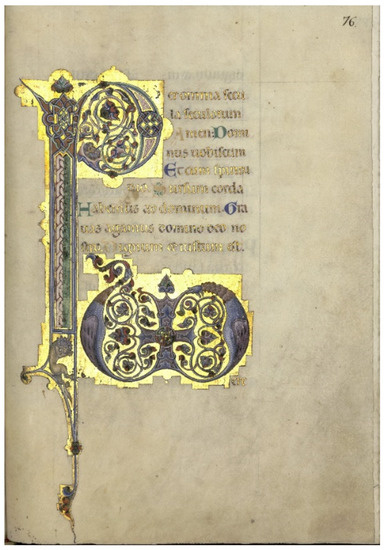 76
Per omnia secu
la seculorum
Amen Domi
nus uobiscum
Et cum spiritu
tuo. Sursum corda
Habemus ad dominum. Gra
tias agamus domino deo no
stro. Dignum & iustum est.